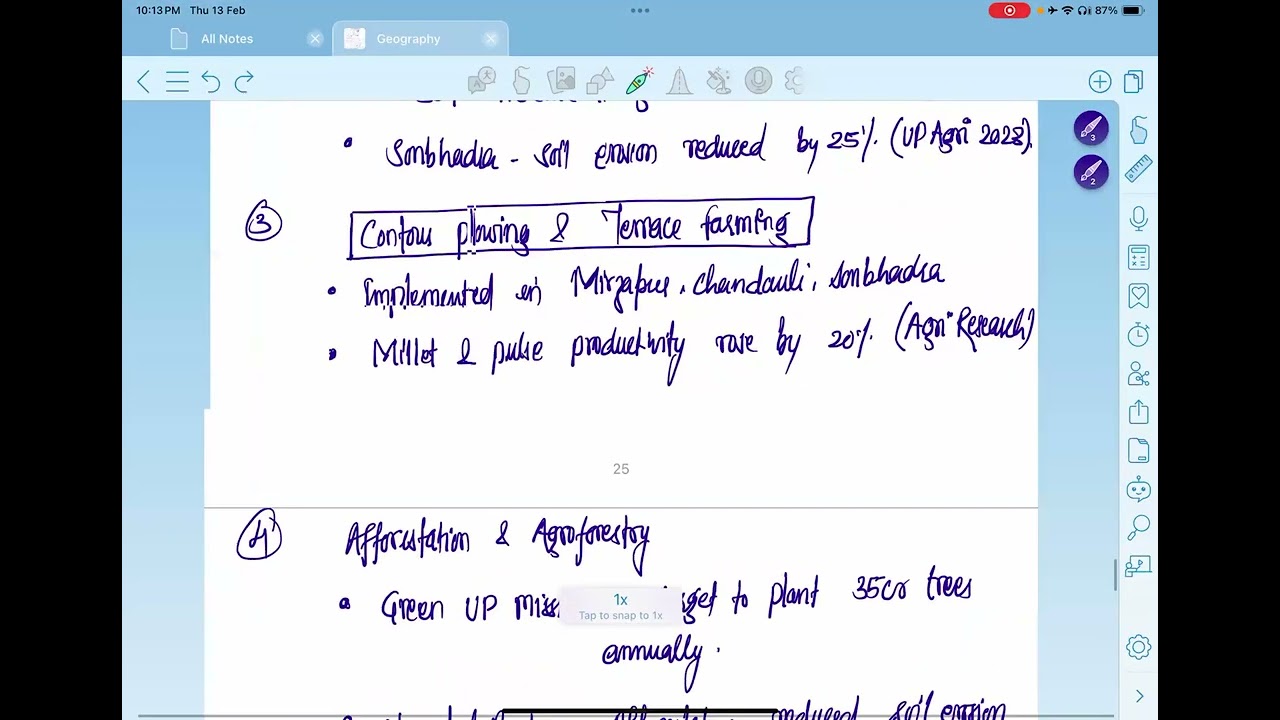 10:13 PM Thu 13 Feb
87%
All Notes
Geography
• Sonbhadra - soil erosion reduced by 25%. (UP Agri 2023).
③ Contour plowing & Terrace farming
• Implemented in Mirzapur, Chandauli, Sonbhadra
• Millet & pulse productivity rose by 20%. (Agri Research)
25
④ Afforestation & Agroforestry
• Green UP to plant 35cr trees
annually.
1x
Tap to snap to 1x
reduced soil erosion
3
2